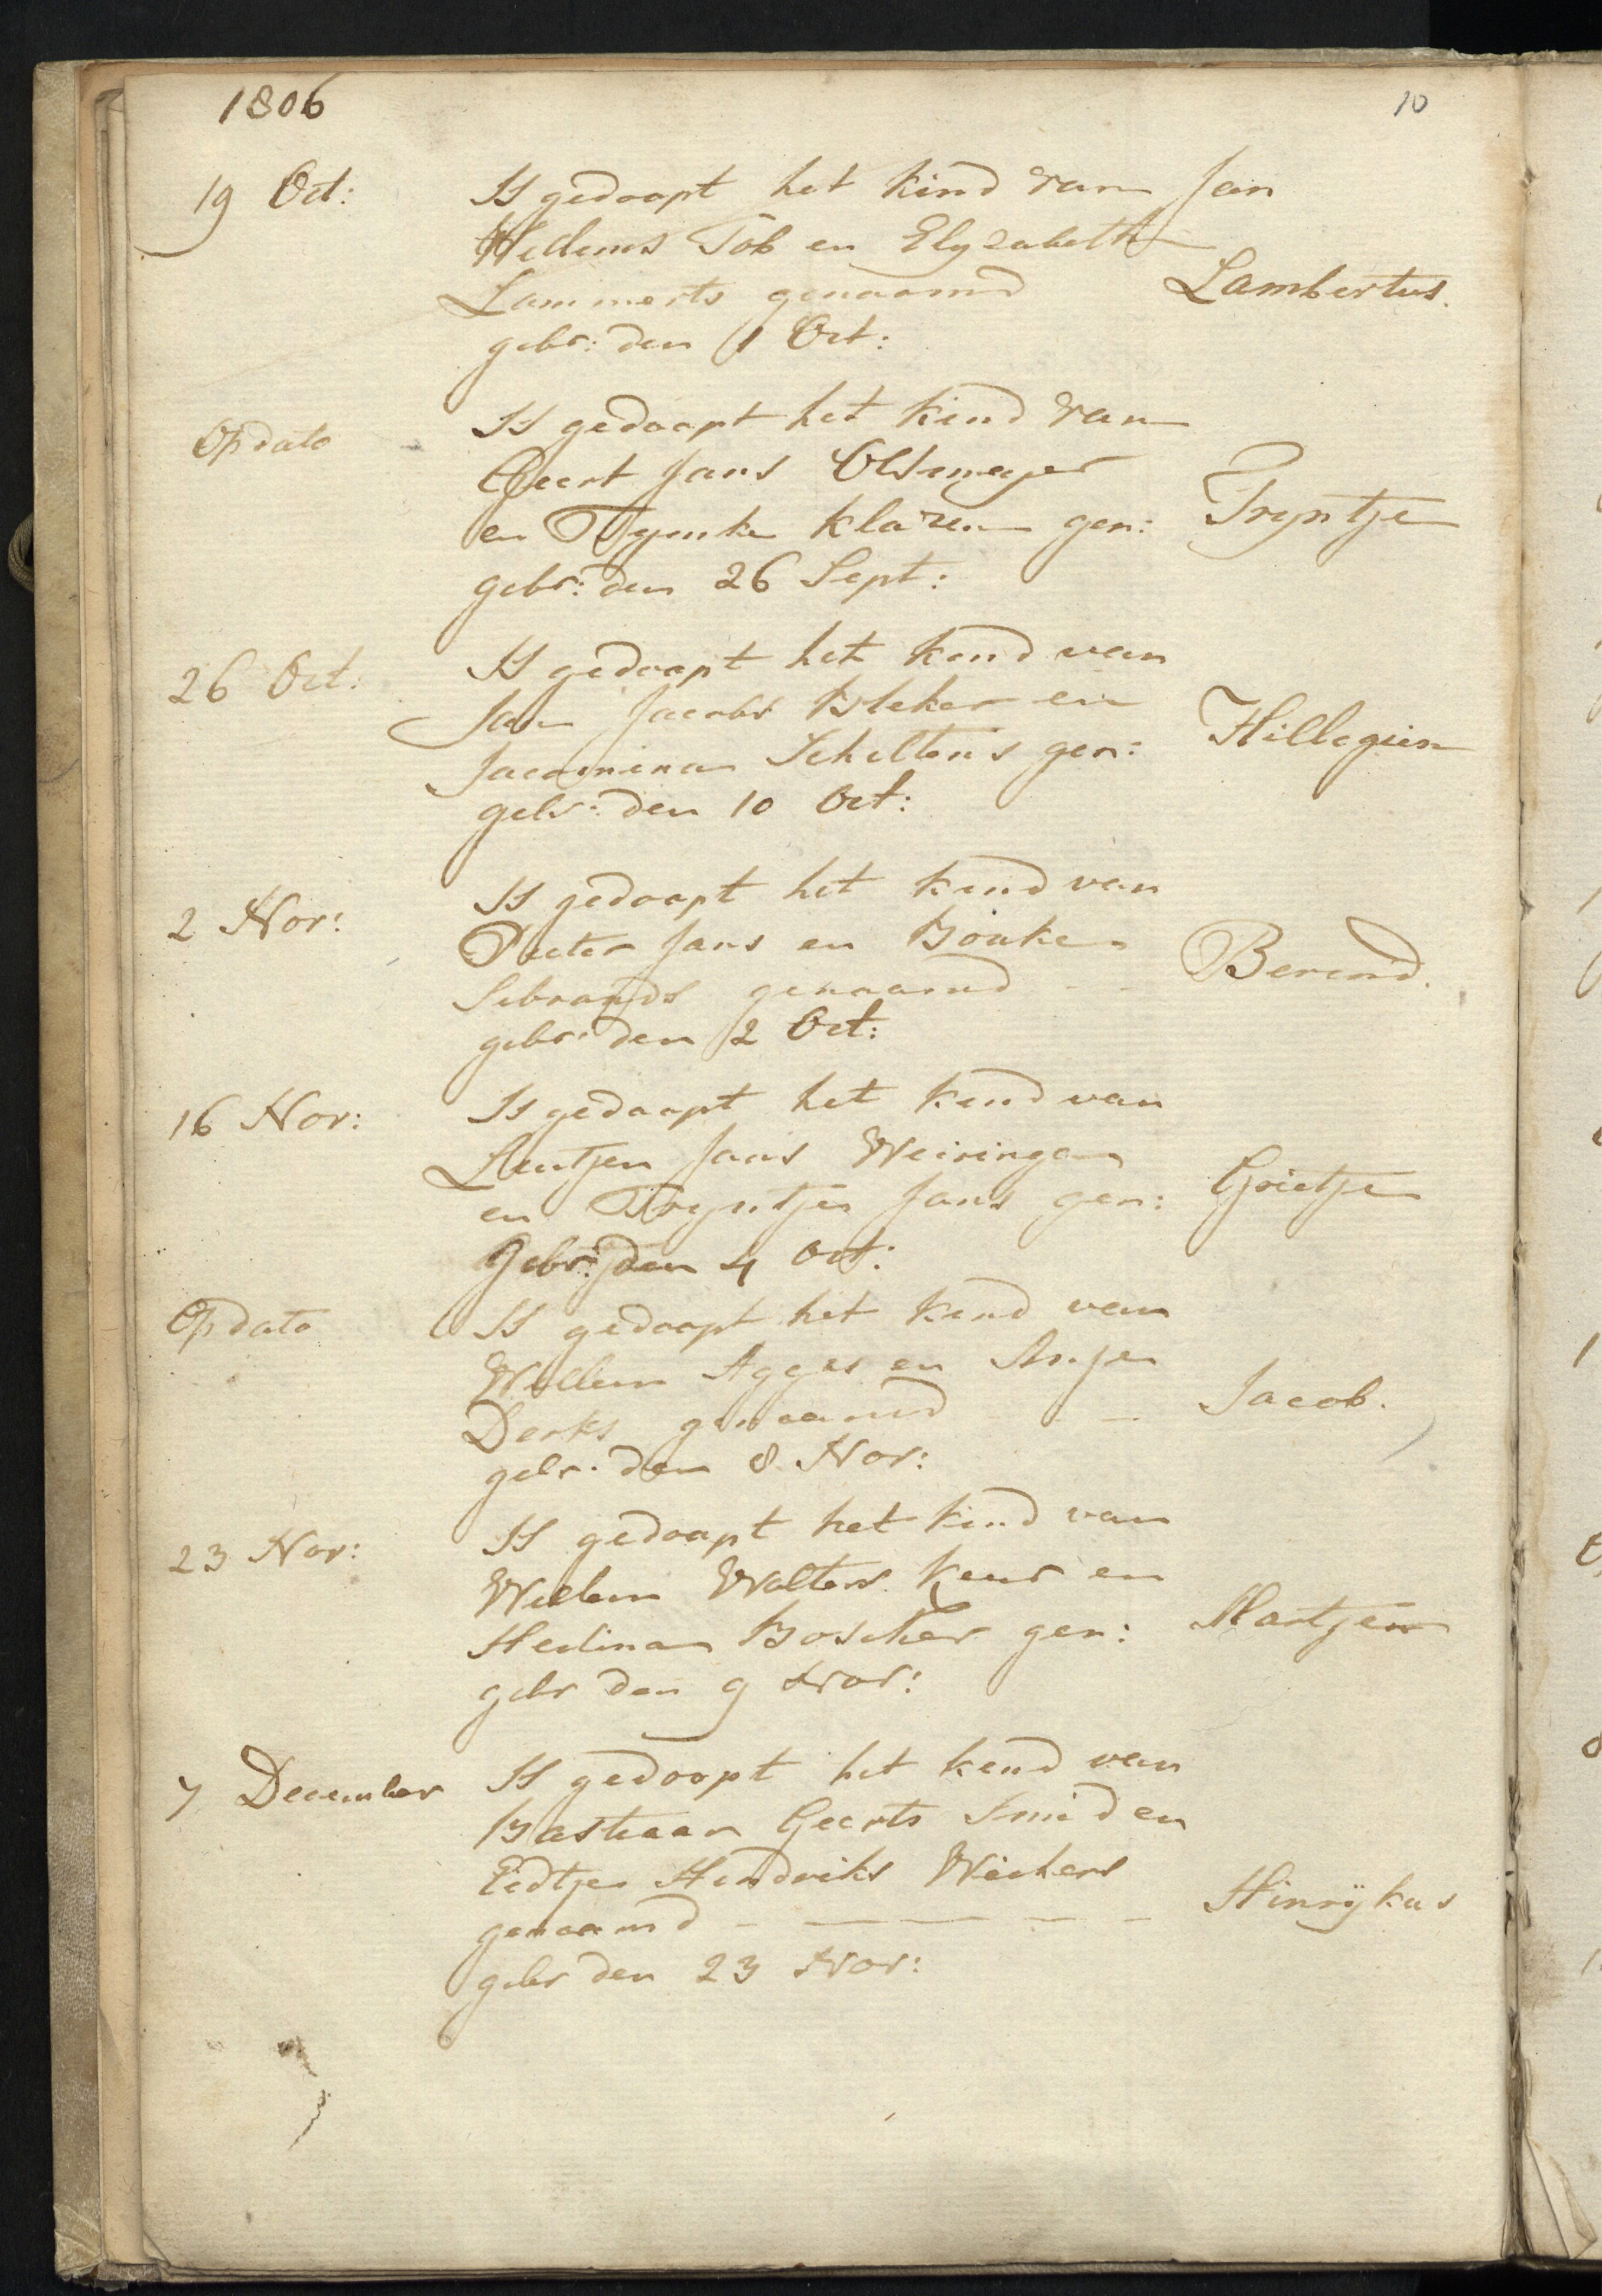 1806
10
19 Oct: Is gedoopt het kind van Jan
Willems Tob en Elyzabeth
Lammerts genaamd Lambertus.
gebr: den 1 Oct:
Op dato Is gedoopt het kind van
Geert Jans Olsmeyer
en Tyemke Klazen gen: Tryntje
gebr: den 26 Sept:
26 Oct: Is gedoopt het kind van
Jan Jacobs Bleker en
Jacomina Scheltens gen: Hillegien
gebr: den 10 Oct:
2 Nov: Is gedoopt het kind van
Pieter Jans en Bouke
Sebrands genaamd - - Berend.
gebr: den 2 Oct:
16 Nov: Is gedoopt het kind van
Luitjen Jans Weiringa
en Tryntje Jans gen: Grietje
Gebr: den 4 Oct:
Op dato Is gedoopt het kind van
Willem Agges en Antje
Derks genaamd - - - Jacob.
gebr: den 8 Nov:
23 Nov: Is gedoopt het kind van
Willem Wolters Keur en
Hedina Boscher gen: Martjen
gebr den 9 Nov:
7 December Is gedoopt het kind van
Bastiaan Geerts Smid en
Eidtje Hendriks Wichers
genaamd - - - - - - Hinrÿkus
gebr den 23 Nov: